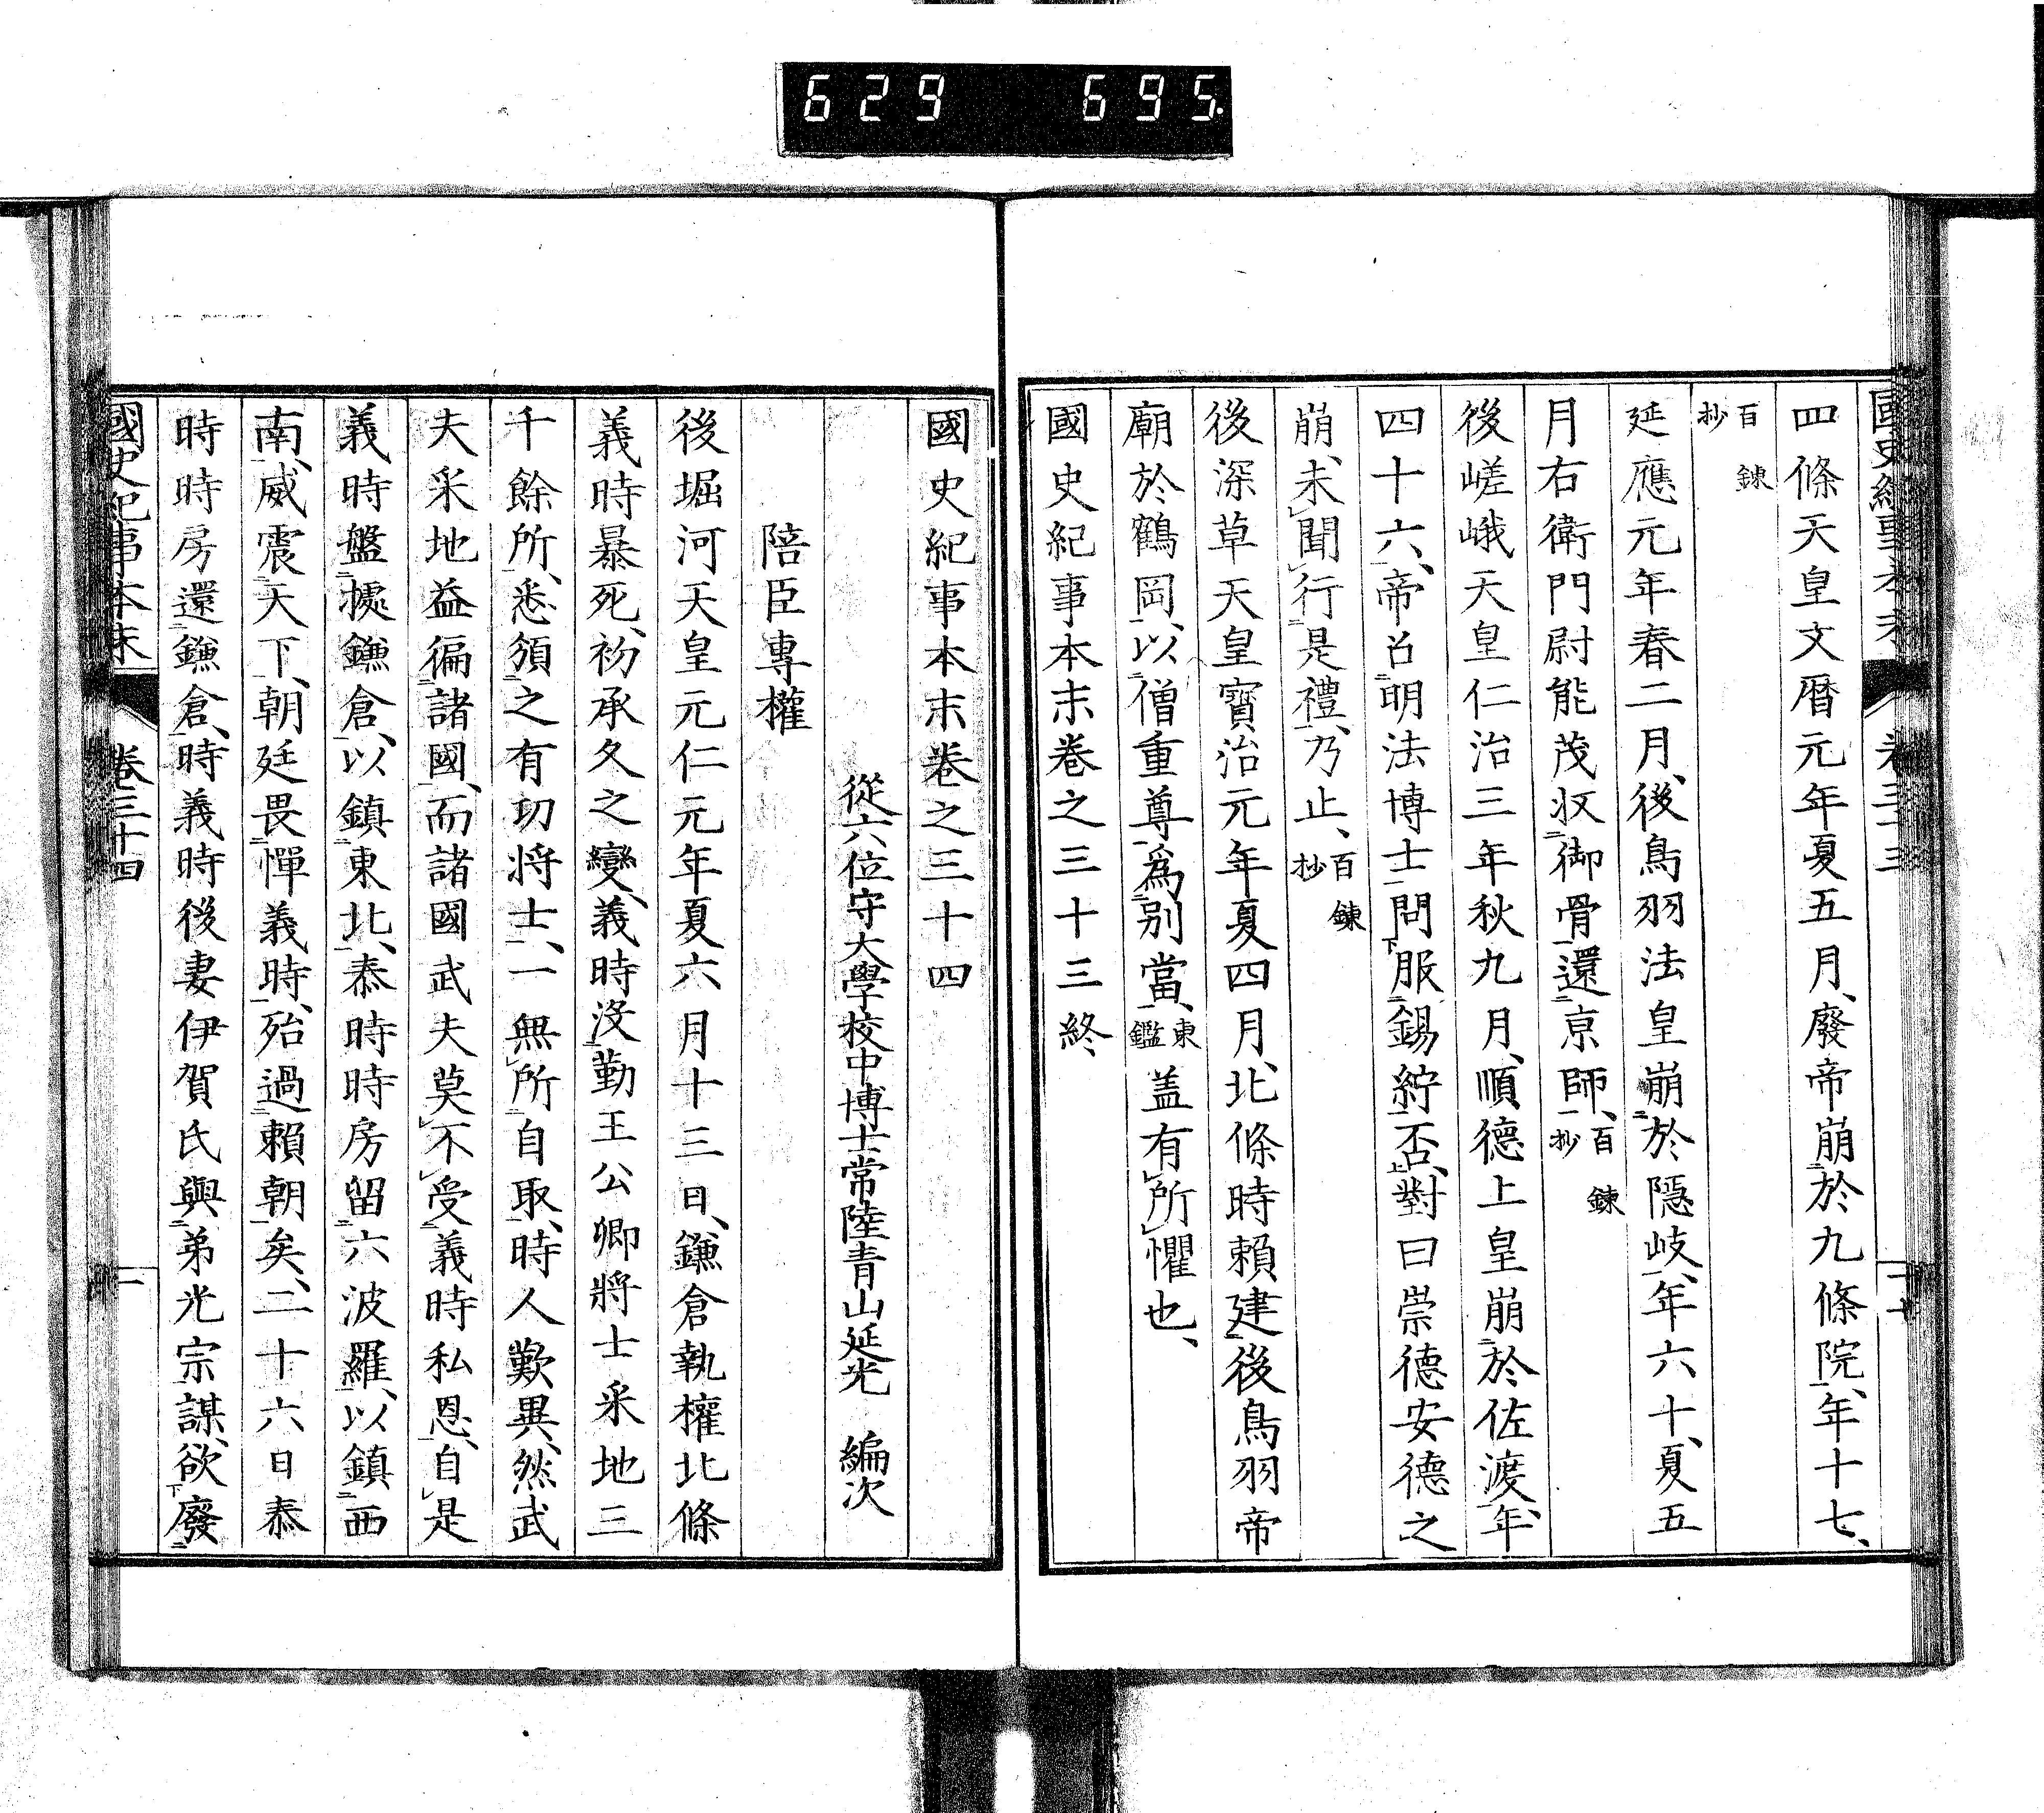 629 695.
國史紀事本末 卷三十三 二十七
四條天皇文曆元年夏五月、廢帝崩於九條院、年十七、
百鍊抄
延應元年春二月、後鳥羽法皇崩於隱岐、年六十、夏五
月右衛門尉能茂收御骨還京師、百鍊抄
後嵯峨天皇仁治三年秋九月、順德上皇崩於佐渡、年
四十六、帝召明法博士問服錫紵否、對曰崇德安德之
崩、未聞行是禮、乃止、百鍊抄
後深草天皇寶治元年夏四月、北條時賴建後鳥羽帝
廟於鶴岡、以僧重尊爲別當、東鑑蓋有所懼也、
國史紀事本末卷之三十三終
國史紀事本末卷之三十四
從六位守大學校中博士常陸青山延光 編次
陪臣專權
後堀河天皇元仁元年夏六月十三日、鎌倉執權北條
義時暴死、初承久之變、義時沒勤王公卿將士采地三
千餘所、悉頒之有功將士、一無所自取、時人歎異、然武
夫采地益徧諸國、而諸國武夫莫不受義時私恩、自是
義時盤據鎌倉、以鎮東北、泰時時房留六波羅、以鎮西
南、威震天下、朝廷畏憚義時、殆過賴朝矣、二十六日泰
時時房還鎌倉、時義時後妻伊賀氏與弟光宗謀、欲廢
國史紀事本末 卷三十四 一